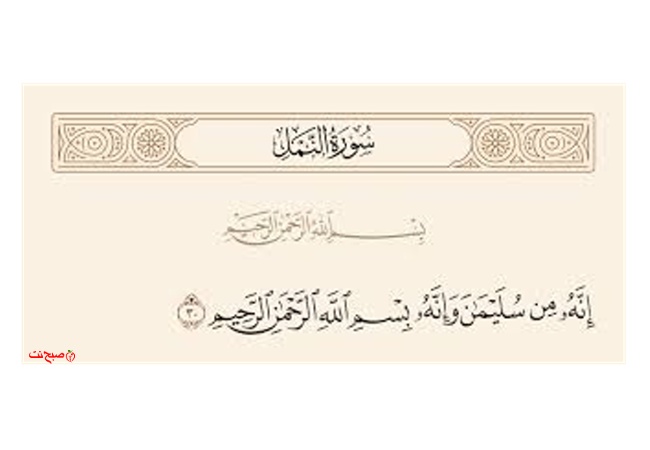 سُورَةُ النَّمْلِ
بِسْمِ اللَّهِ الرَّحْمَٰنِ الرَّحِيمِ
إِنَّهُۥ مِن سُلَيْمَٰنَ وَإِنَّهُۥ بِسْمِ ٱللَّهِ ٱلرَّحْمَٰنِ ٱلرَّحِيمِ ٣٠
صبح‌نت